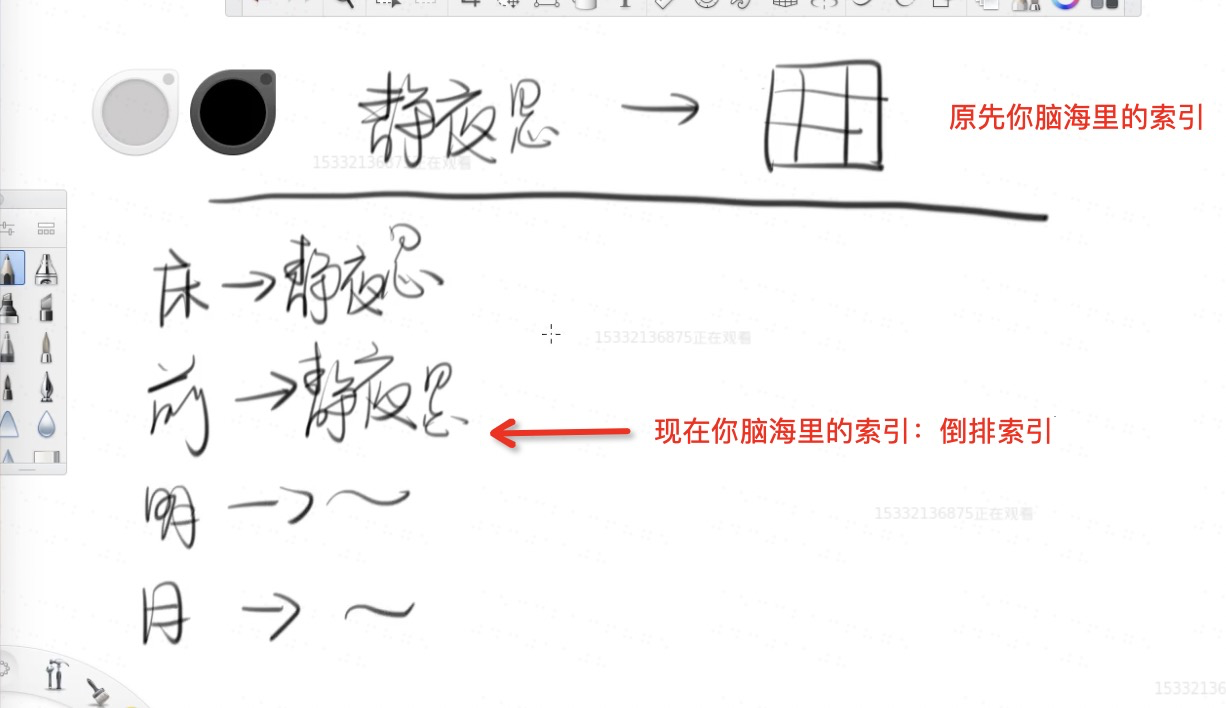 静夜思 → 原先你脑海里的索引
15332136875正在观看
床→静夜思
15332136875正在观看
前→静夜思
现在你脑海里的索引：倒排索引
明→~
15332136875正在观看
月→~
15332136